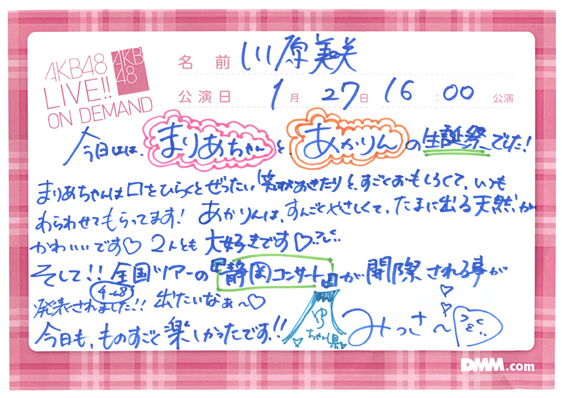 AKB48
LIVE!!
ON DEMAND
AKB
48
名前 川原美咲
公演日 1月27日 16:00 公演
今日は、まりあちゃんと、あかりんの生誕祭でした!
まりあちゃんは口をひらくとぜったい
すごくおもしろくて、いつも
わらわせてもらってます! あかりんは、すんごくやさしくて、たまに出る天然が
かわいいです♡ 2人とも大好きです♡
そして!! 全国ツアーの『静岡コンサート』が開際される事が
発表されました!! 出たいなぁ〜♡
(4→8)
今日も、ものすごく楽しかったです!!
ちゃん県
みっさ〜
DMM.com